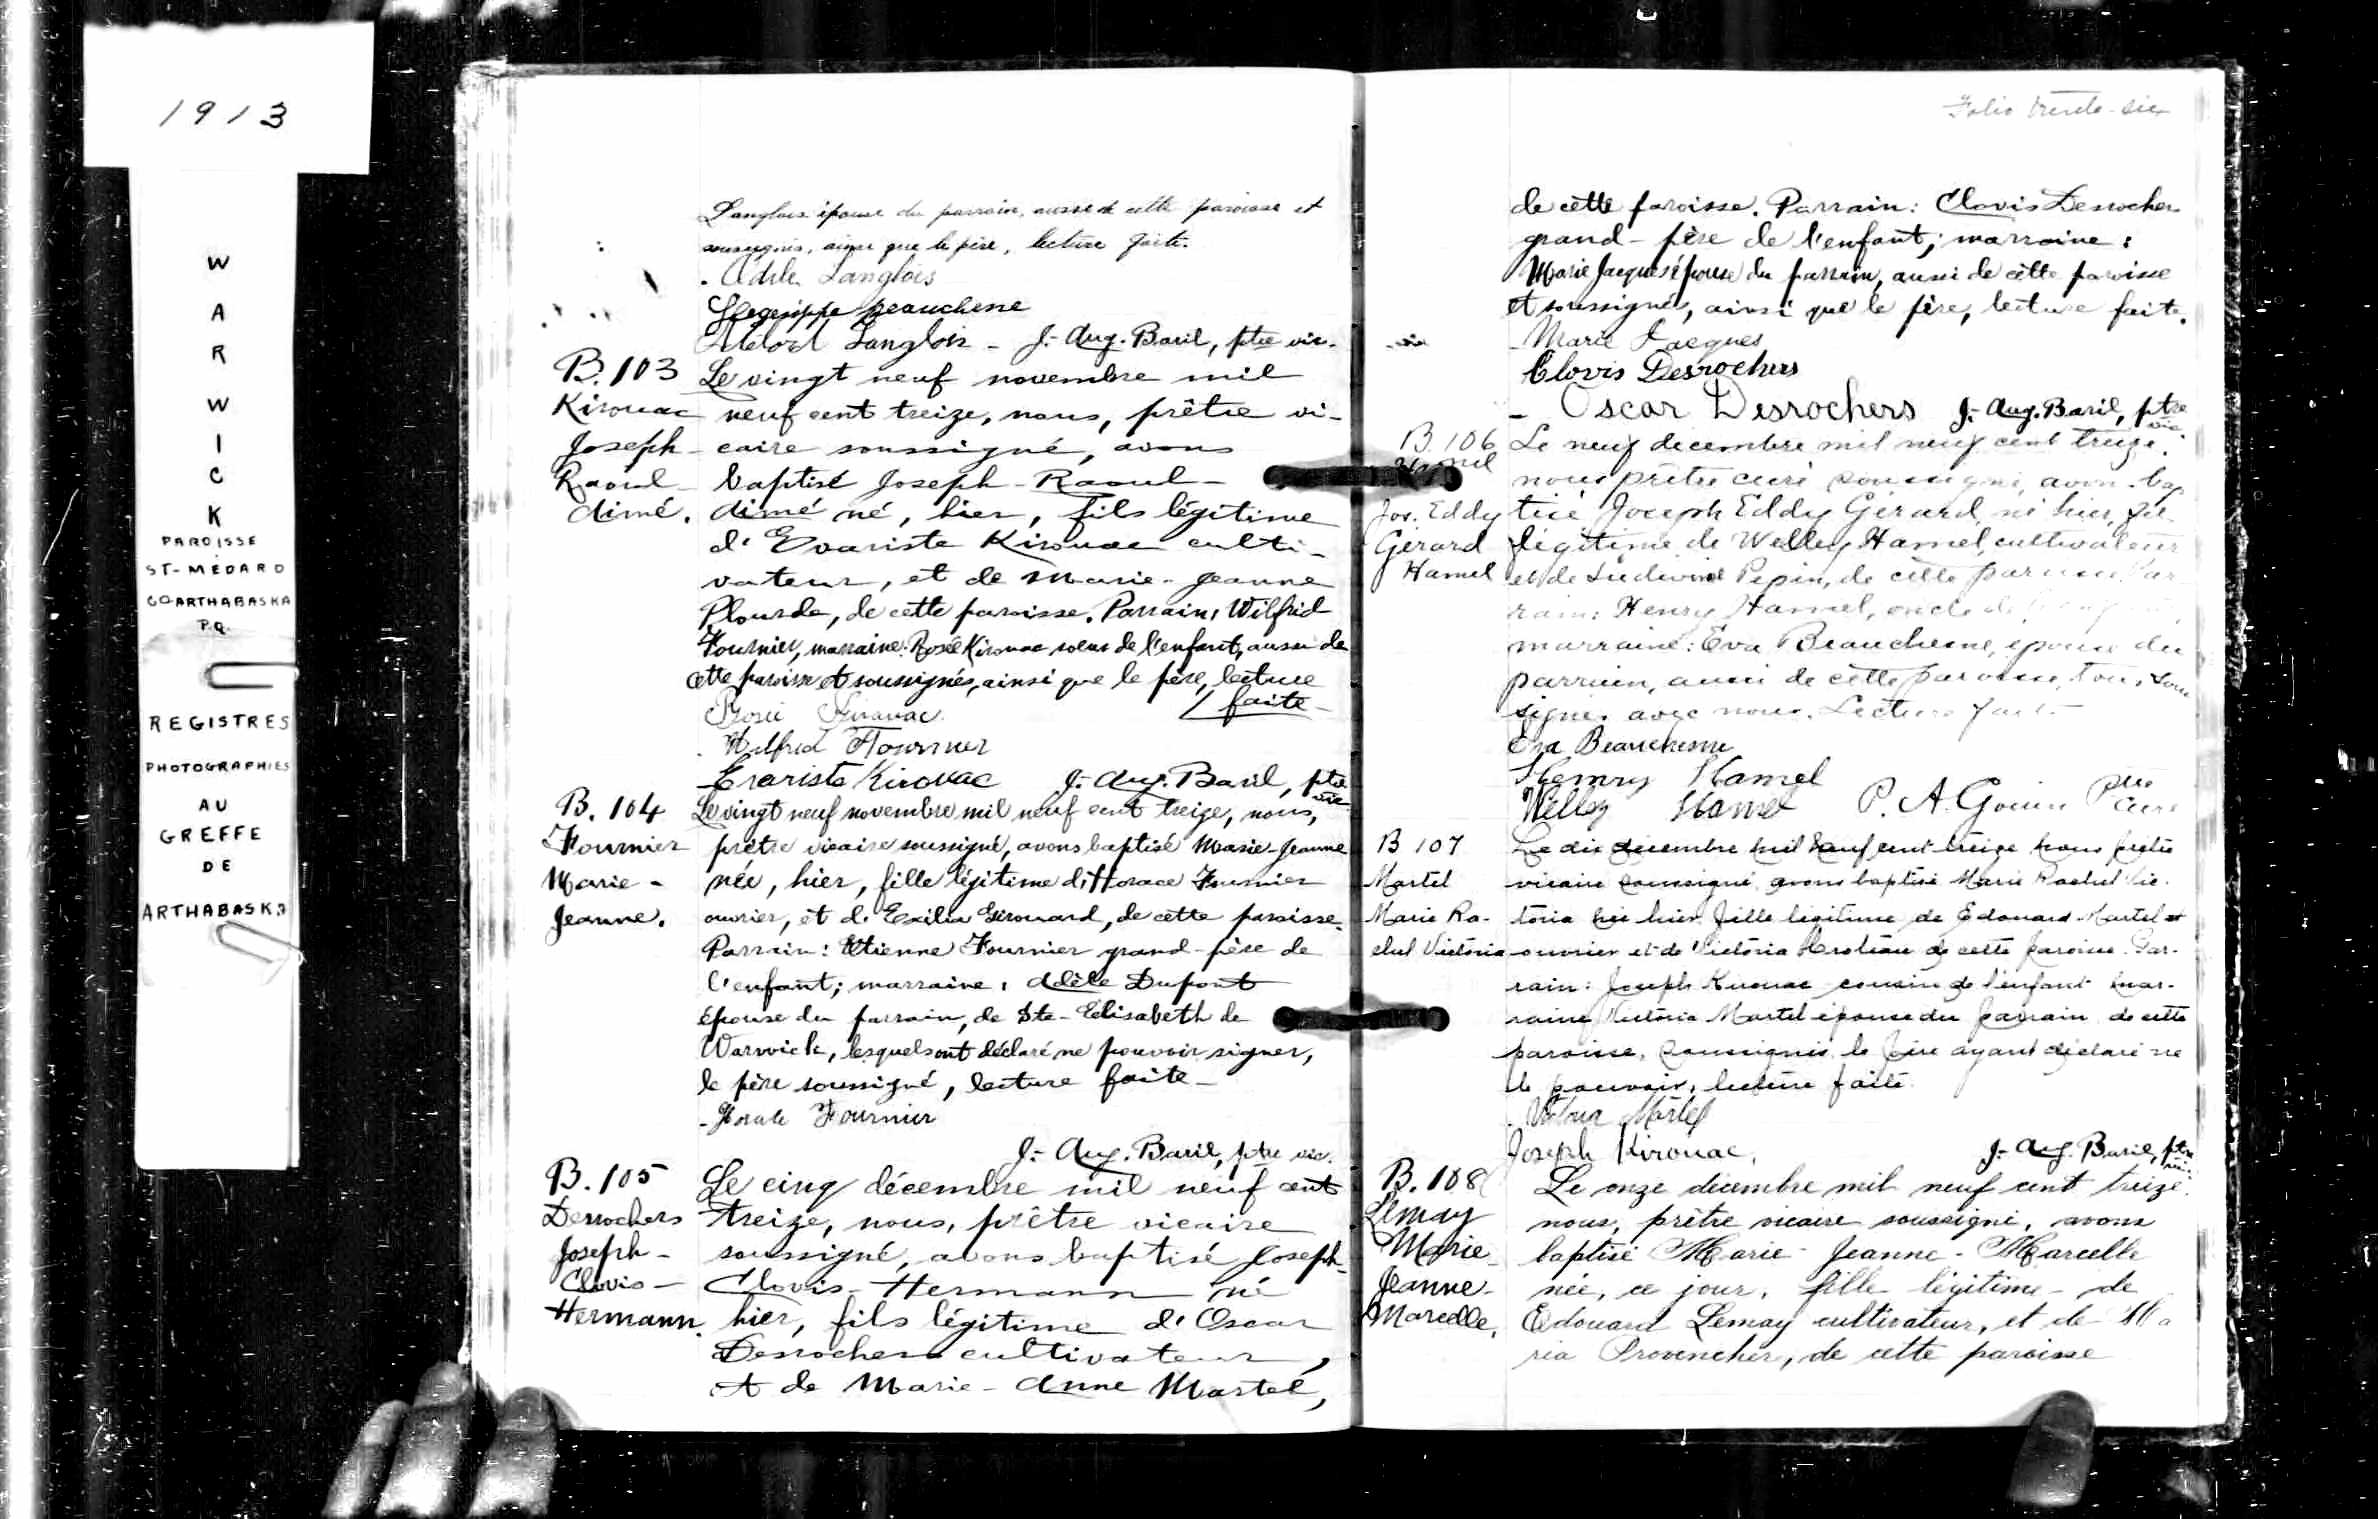 1913
W
A
R
W
I
C
K
PAROISSE
ST-MÉDARD
CO ARTHABASKA
P.Q.
REGISTRES
PHOTOGRAPHIÉS
AU
GREFFE
DE
ARTHABASKA
Langlois épouse du parrain, aussi de cette paroisse et
soussignés, ainsi que le père, lecture faite.
Langlois
Hegesippe Beauchesne
Langlois - J.-Aug. Baril, ptre vic.
B. 103
Kirouac
Joseph-
Raoul-
dimé.
Le vingt neuf novembre mil
neuf cent treize, nous, prêtre vi-
caire soussigné, avons
baptisé Joseph-Raoul-
dimé né, hier, fils légitime
d'Evariste Kirouac culti-
vateur, et de Marie-Jeanne
Plourde, de cette paroisse. Parrain, Wilfrid
Fournier, marraine: Rosée Kirouac soeur de l'enfant, aussi de
cette paroisse et soussignés, ainsi que le père, lecture
faite-
Kirouac
Wilfrid Fournier
Evariste Kirouac J.-Aug. Baril, ptre
vic.
B. 104
Fournier
Marie-
Jeanne.
Le vingt neuf novembre mil neuf cent treize, nous,
prêtre vicaire soussigné, avons baptisé Marie-Jeanne
née, hier, fille légitime d'Horace Fournier
ouvrier, et d'Exilia Girouard, de cette paroisse.
Parrain: Etienne Fournier grand-père de
l'enfant; marraine, Adèle Dupont
épouse du parrain, de Ste-Elisabeth de
Warwick, lesquels ont déclaré ne pouvoir signer,
le père soussigné, lecture faite-
- Fournier
J.-Aug. Baril, ptre vic.
B. 105
Desrochers
Joseph-
Clovis-
Hermann.
Le cinq décembre mil neuf cent
treize, nous, prêtre vicaire
soussigné, avons baptisé Joseph-
Clovis-Hermann né
hier, fils légitime d'Oscar
Desrochers cultivateur,
et de Marie-Anne Martel,
Folio trente-six
de cette paroisse. Parrain: Clovis Desrochers
grand-père de l'enfant; marraine:
Marie Jacques épouse du parrain, aussi de cette paroisse
et soussignés, ainsi que le père, lecture faite.
-Marie Jacques
Clovis Desrochers
- Oscar Desrochers J.-Aug. Baril, ptre
vic
B. 106
Hamel
Jos. Eddy
Gérard
Hamel
Le neuf decembre mil neuf cent treize,
nous prêtre curé soussigné, avons bap
tisé Joseph Eddy Gérard, né hier, fils
légitime de Welley Hamel, cultivateur
et de Pepin, de cette paroisse. Par
rain: Henry Hamel, oncle de
marraine: Eva Beauchesne, épouse du
parrain, aussi de cette paroisse, tous sous
signés avec nous. Lecture faite
Eva Beauchesne
Henry Hamel
Welley Hamel P. A. Gouin ptre
curé
B 107
Martel
Marie Ra-
chel Victoria
Le dix decembre mil neuf cent treize nous prêtre
vicaire soussigné, avons baptisé Marie Rachel Vic-
toria née hier fille légitime de Edouard Martel
ouvrier et de Victoria de cette paroisse. Par-
rain: Joseph Kirouac cousin de l'enfant mar-
raine Victoria Martel épouse du parrain, de cette
paroisse, soussignés, le père ayant déclaré ne
le pouvoir, lecture faite.
Martel
Joseph Kirouac, J.-Aug. Baril, ptre
vic.
B. 108
Lemay
Marie-
Jeanne-
Marcelle.
Le onze décembre mil neuf cent treize,
nous, prêtre vicaire soussigné, avons
baptisé Marie-Jeanne-Marcelle
née, ce jour, fille légitime de
Edouard Lemay cultivateur, et de Ma
ria Provencher, de cette paroisse